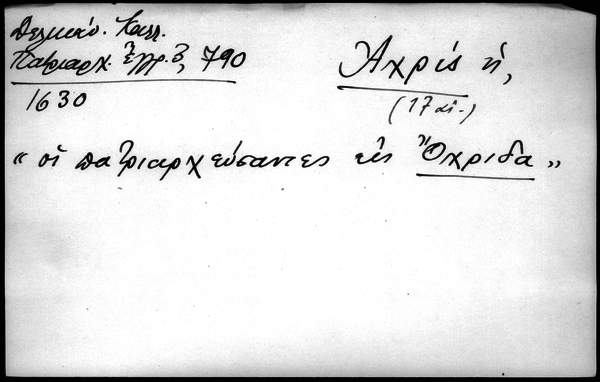 Δελικάν. Καλλ.
Πατριαρχ. Ἔγγρ. 3, 790
1630
Ἀχρίς ἡ,
(17 αἰ.)
"οἱ πατριαρχεύσαντες εἰς Ὄχριδα"